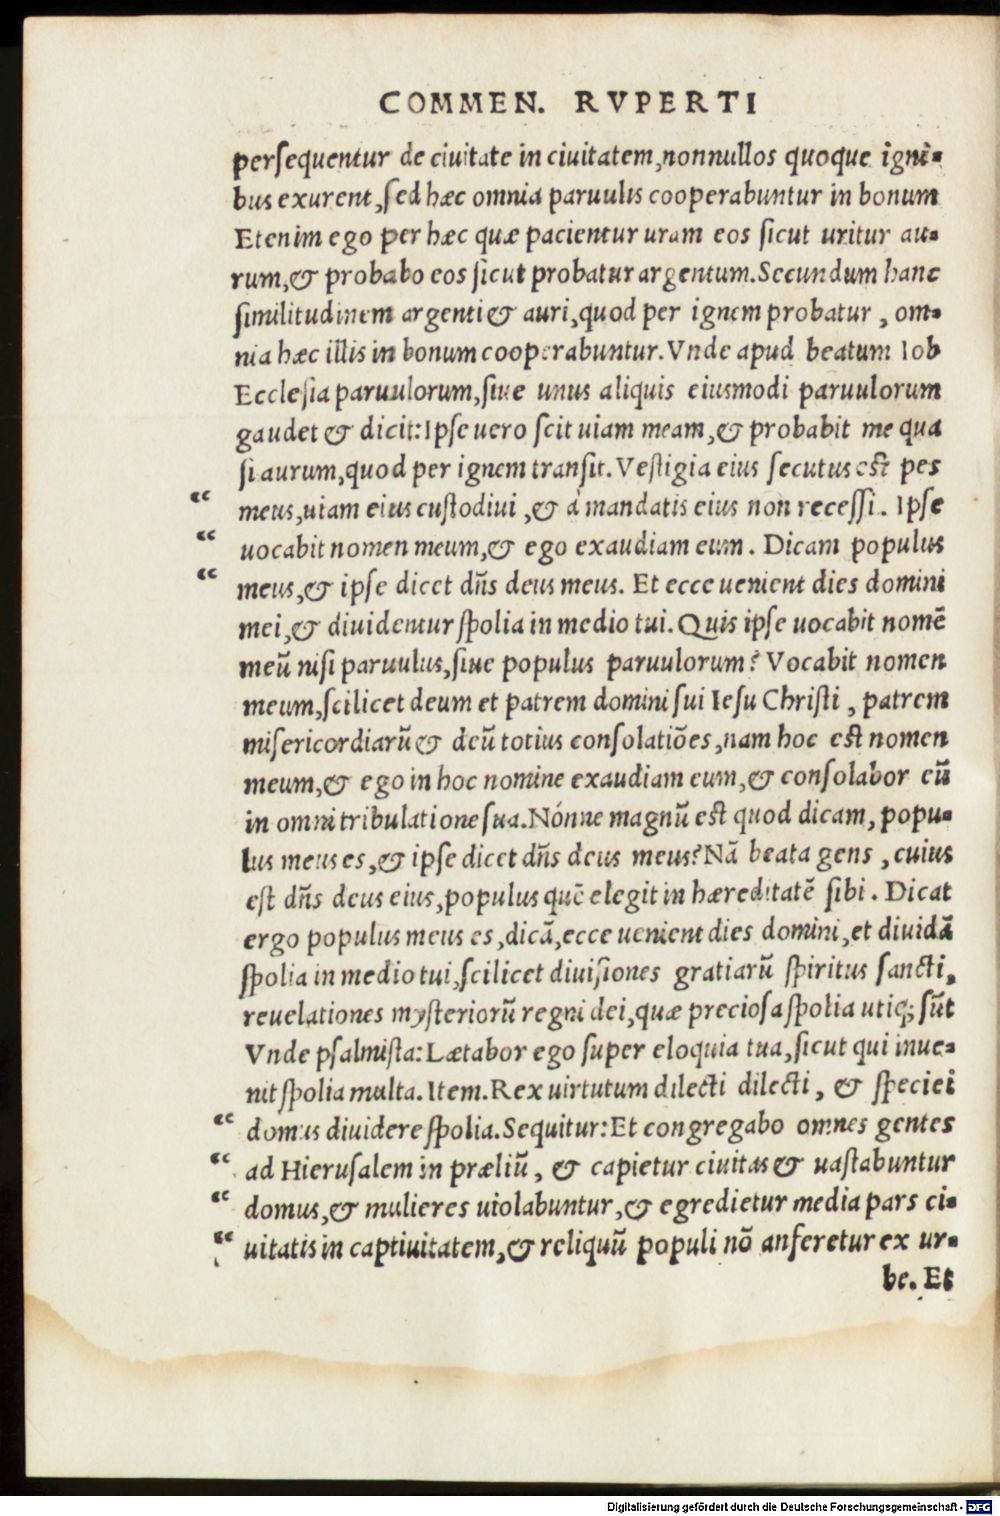 COMMEN. RVPERTI
persequentur de ciuitate in ciuitatem, nonnullos quoque igni-
bus exurent, sed hæc omnia paruulis cooperabuntur in bonum
Etenim ego per hæc quæ pacientur uram eos sicut uritur au-
rum, & probabo eos sicut probatur argentum. Secundum hanc
similitudinem argenti & auri, quod per ignem probatur, om-
nia hæc illis in bonum cooperabuntur. Vnde apud beatum Iob
Ecclesia paruulorum, siue unus aliquis eiusmodi paruulorum
gaudet & dicit: Ipse uero scit uiam meam, & probabit me qua
si aurum, quod per ignem transit. Vestigia eius secutus est pes
“ meus, uiam eius custodiui, & à mandatis eius non recessi. Ipse
“ uocabit nomen meum, & ego exaudiam eum. Dicam populus
“ meus, & ipse dicet dñs deus meus. Et ecce uenient dies domini
mei, & diuidentur spolia in medio tui. Quis ipse uocabit nomē
meū nisi paruulus, siue populus paruulorum? Vocabit nomen
meum, scilicet deum et patrem domini sui Iesu Christi, patrem
misericordiarū & deū totius consolatiōes, nam hoc est nomen
meum, & ego in hoc nomine exaudiam eum, & consolabor eū
in omni tribulatione sua. Nónne magnū est quod dicam, popu-
lus meus es, & ipse dicet dñs deus meus? Nā beata gens, cuius
est dñs deus eius, populus quē elegit in hæreditatē sibi. Dicat
ergo populus meus es, dicā, ecce uenient dies domini, et diuidā
spolia in medio tui, scilicet diuisiones gratiarū spiritus sancti,
reuelationes mysteriorū regni dei, quæ preciosa spolia utiq; sūt
Vnde psalmista: Lætabor ego super eloquia tua, sicut qui inue-
nit spolia multa. Item. Rex uirtutum dilecti dilecti, & speciei
“ domus diuidere spolia. Sequitur: Et congregabo omnes gentes
“ ad Hierusalem in præliū, & capietur ciuitas & uastabuntur
“ domus, & mulieres uiolabuntur, & egredietur media pars ci-
“ uitatis in captiuitatem, & reliquū populi nō anferetur ex ur-
be. Et
Digitalisierung gefördert durch die Deutsche Forschungsgemeinschaft - DFG